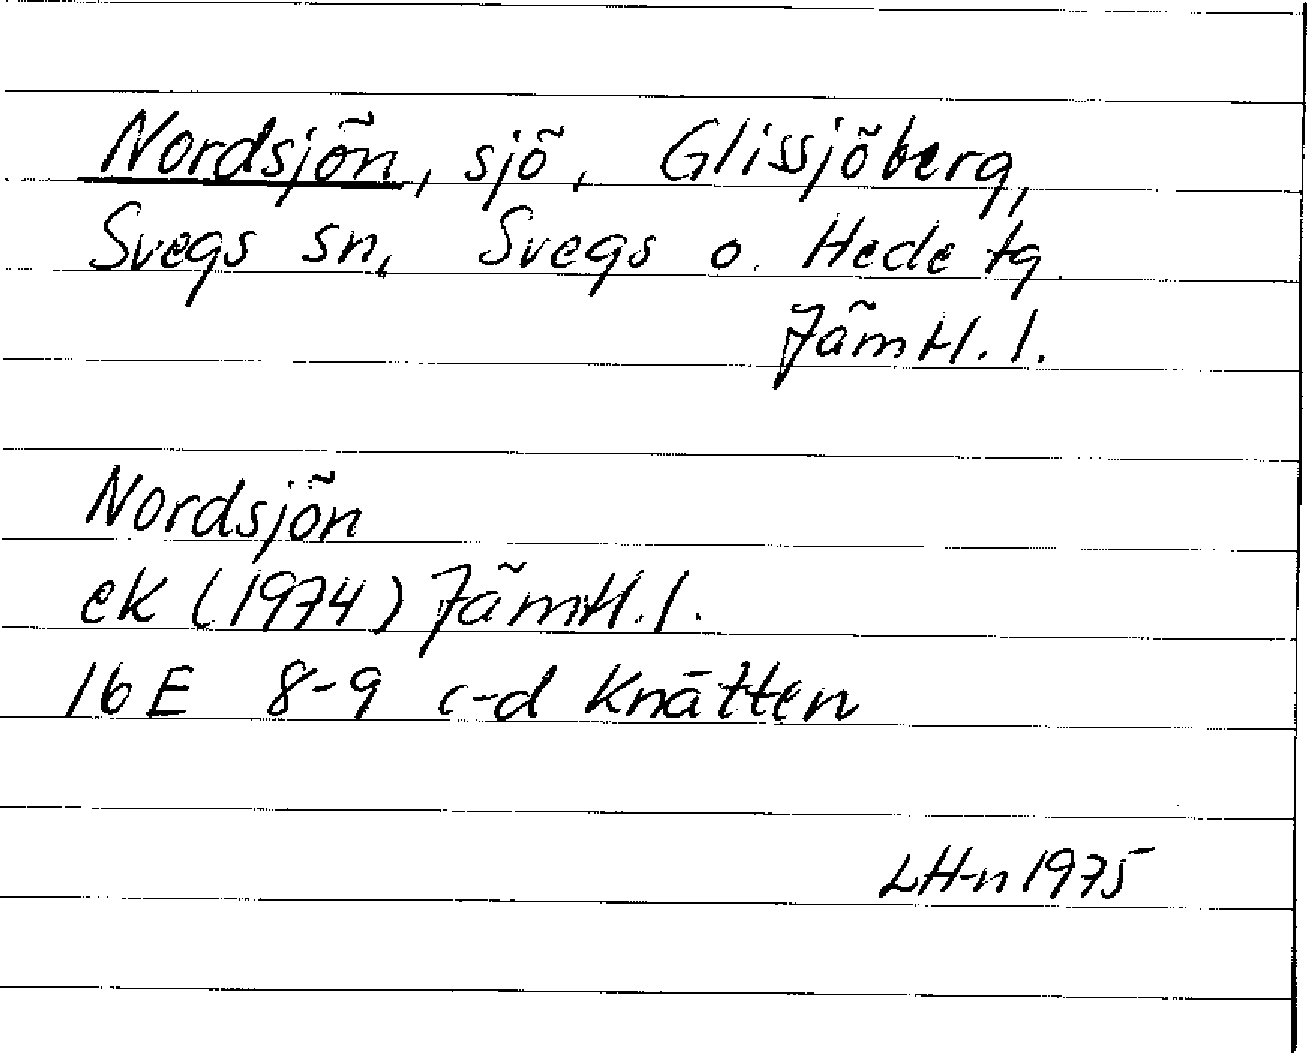 Nordsjön, sjö, Glissjöberg,
Svegs sn, Svegs o. Hede tg.
Jämtl. l.
Nordsjön
ek (1974) Jämtl. l.
16 E 8-9 c-d Knätten
LH-n 1975